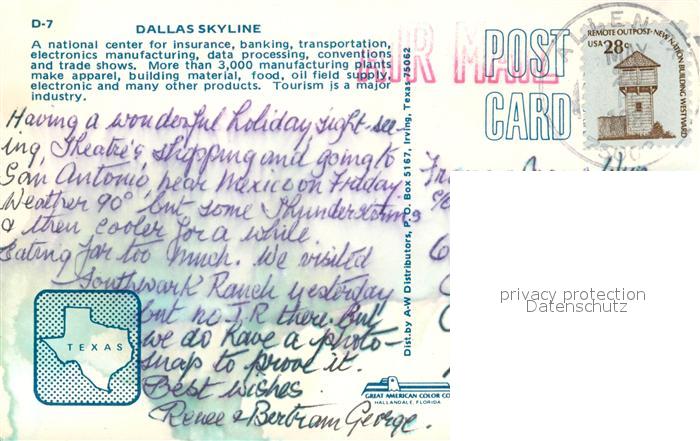 D-7
DALLAS SKYLINE
A national center for insurance, banking, transportation,
electronics manufacturing, data processing, conventions
and trade shows. More than 3,000 manufacturing plants
make apparel, building material, food, oil field supply,
electronic and many other products. Tourism is a major
industry.
AIR MAIL
POST
CARD
REMOTE OUTPOST·NEW NATION BUILDING WESTWARD
USA 28c
ALLEN
MAY
Having a wonderful holiday sight-see-
ing, Theatre's, shopping and going to
San Antonio near Mexico on Friday
Weather 90° but some Thunderstorms
& then cooler for a while.
Eating far too much. We visited
Southwark Ranch yesterday
but no J.R there. But
we do have a photo-
snap to prove it.
Best wishes
Renee & Bertram George.
TEXAS
Dist. by A-W Distributors, P. O. Box 5167, Irving, Texas 75062
GREAT AMERICAN COLOR CO
HALLANDALE, FLORIDA
privacy protection
Datenschutz